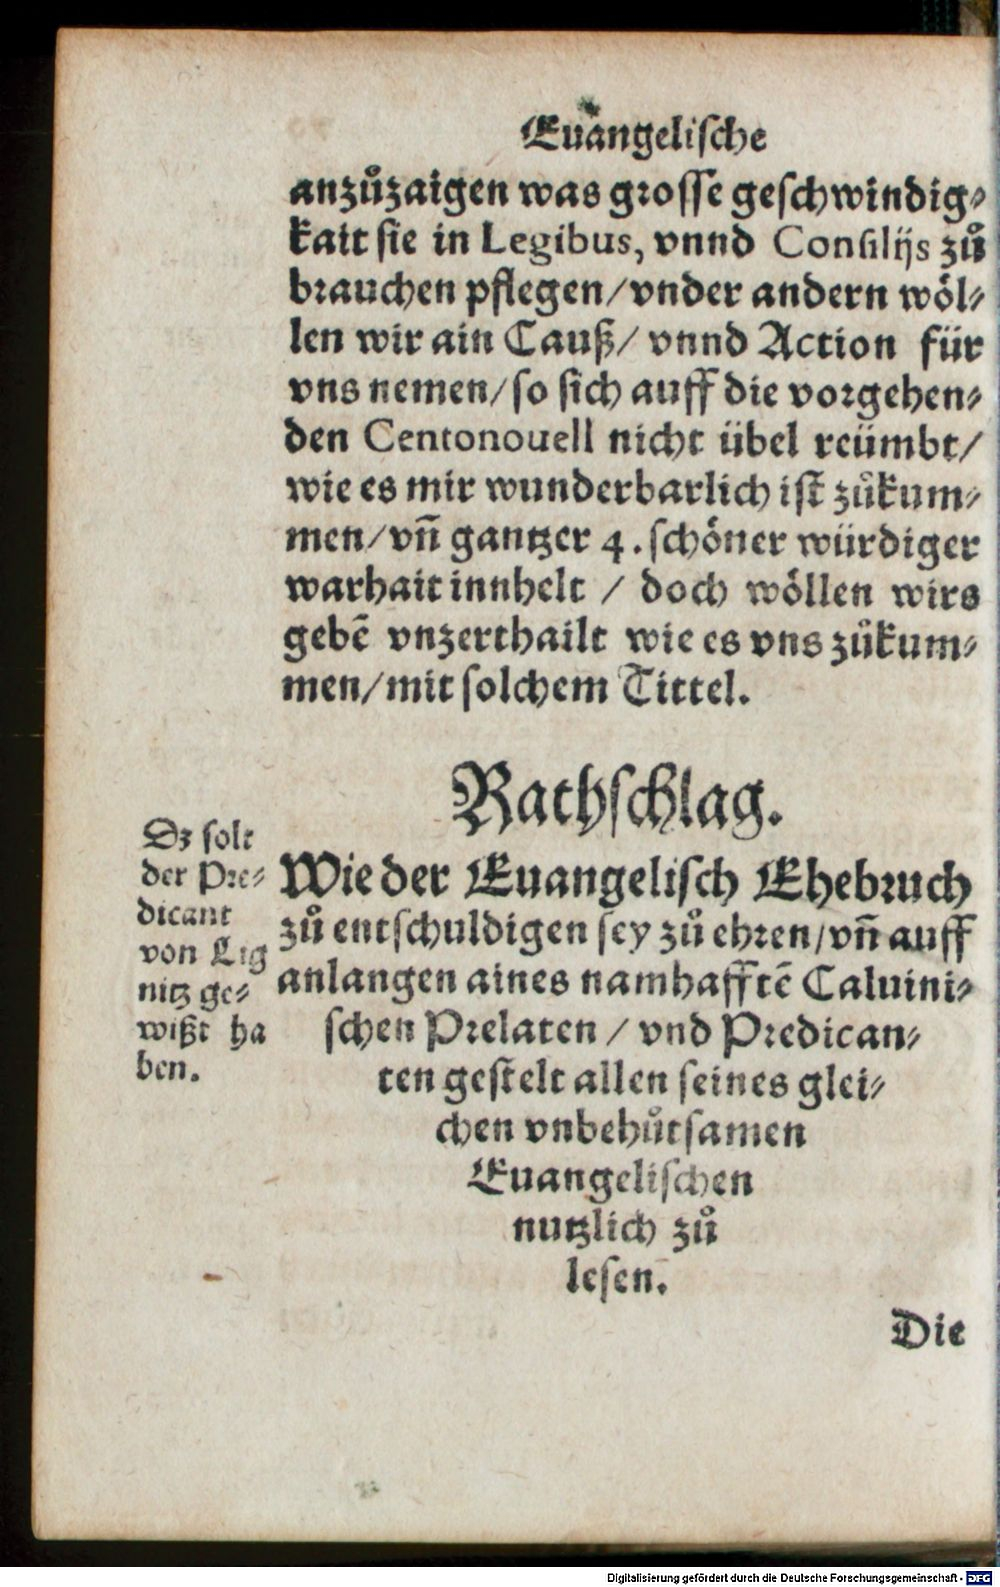 Euangelische
anzůzaigen was grosse geschwindig⸗
kait sie in Legibus, vnnd Consilijs zů
brauchen pflegen/vnder andern wöl⸗
len wir ain Cauß/ vnnd Action für
vns nemen/so sich auff die vorgehen⸗
den Centonouell nicht übel reümbt/
wie es mir wunderbarlich ist zůkum⸗
men/vñ gantzer 4. schöner würdiger
warhait innhelt / doch wöllen wirs
gebẽ vnzerthailt wie es vns zůkum⸗
men/mit solchem Tittel.
Rathschlag.
Wie der Euangelisch Ehebruch
zů entschuldigen sey zů ehren/vñ auff
anlangen aines namhafftẽ Caluini⸗
schen Prelaten / vnd Predican⸗
ten gestelt allen seines glei⸗
chen vnbehůtsamen
Euangelischen
nutzlich zů
lesen.
Dz solt
der Pre⸗
dicant
von Lig
nitz ge⸗
wißt ha
ben.
Die
Digitalisierung gefördert durch die Deutsche Forschungsgemeinschaft - DFG